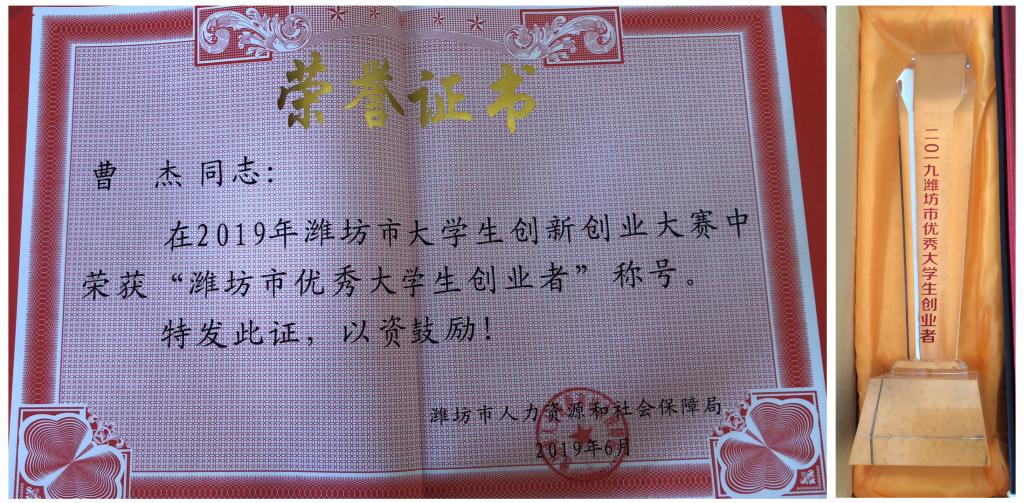 荣誉证书
曹 杰 同志：
在2019年潍坊市大学生创新创业大赛中
荣获“潍坊市优秀大学生创业者”称号。
特发此证，以资鼓励！
潍坊市人力资源和社会保障局
2019年6月
二〇一九潍坊市优秀大学生创业者